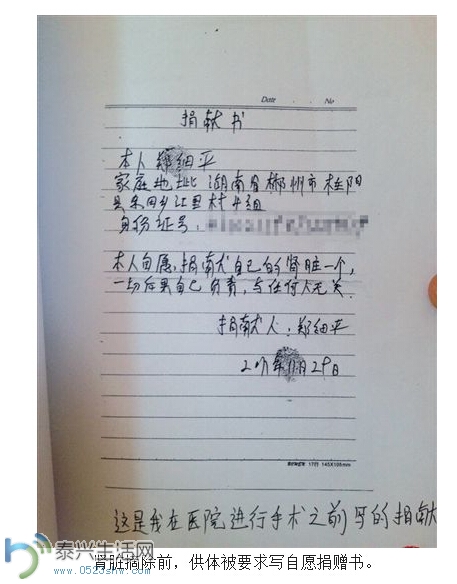 Date No
捐献书
本人郑细平
家庭地址 湖南省郴州市桂阳
县
村4组
身份证号:
本人自愿,捐献自己的肾脏一个,
一切后果自己负责,与任何人无关.
捐献人:郑细平
29日
17行 145X105mm
这是我在医院进行手术之前写的捐献
泰兴生活网
www.0523shw.com
肾脏摘除前,供体被要求写自愿捐赠书。